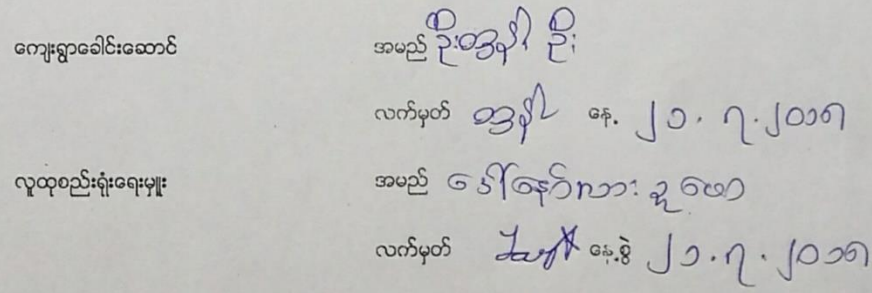 ကျေးရွာခေါင်းဆောင် အမည် ဦးဣန္ဒြိ ဦး
လက်မှတ် နေ့. ၂၁.၇.၂၀၁၈
လူထုစည်းရုံးရေးမှူး အမည် ဒေါ်နော်လား ဒူ ဖော
လက်မှတ် နေ့.စွဲ ၂၁.၇.၂၀၁၈